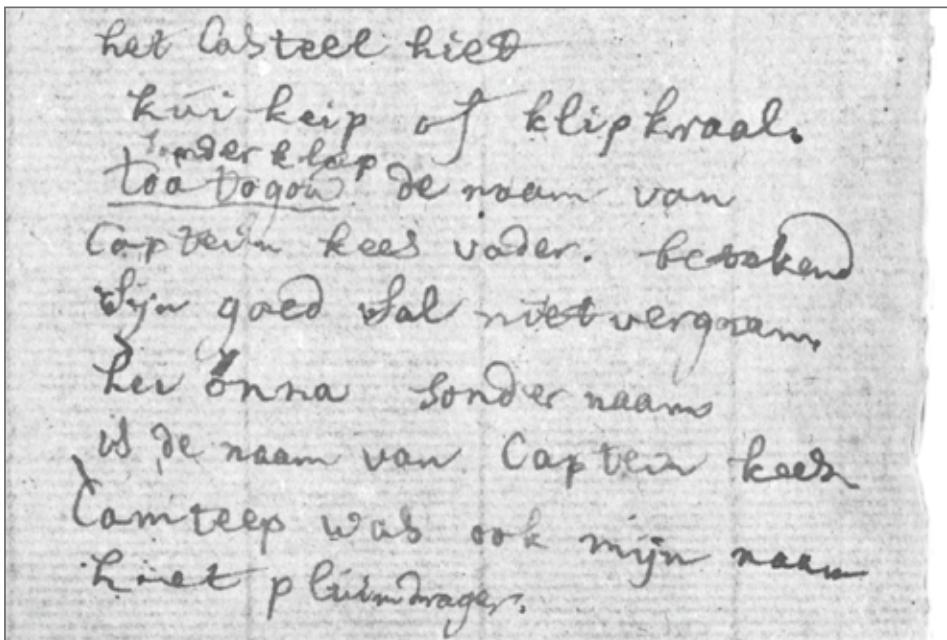 het Casteel hiet
kui keip of klipkraal.
sonder klap
toa togou de naam van
Captein kees vader. betekend
sijn goed sal niet vergaan,
hei onna sonder naam
is de naam van Captein kees
Camteep was ook mijn naam
hiet pluimdrager.